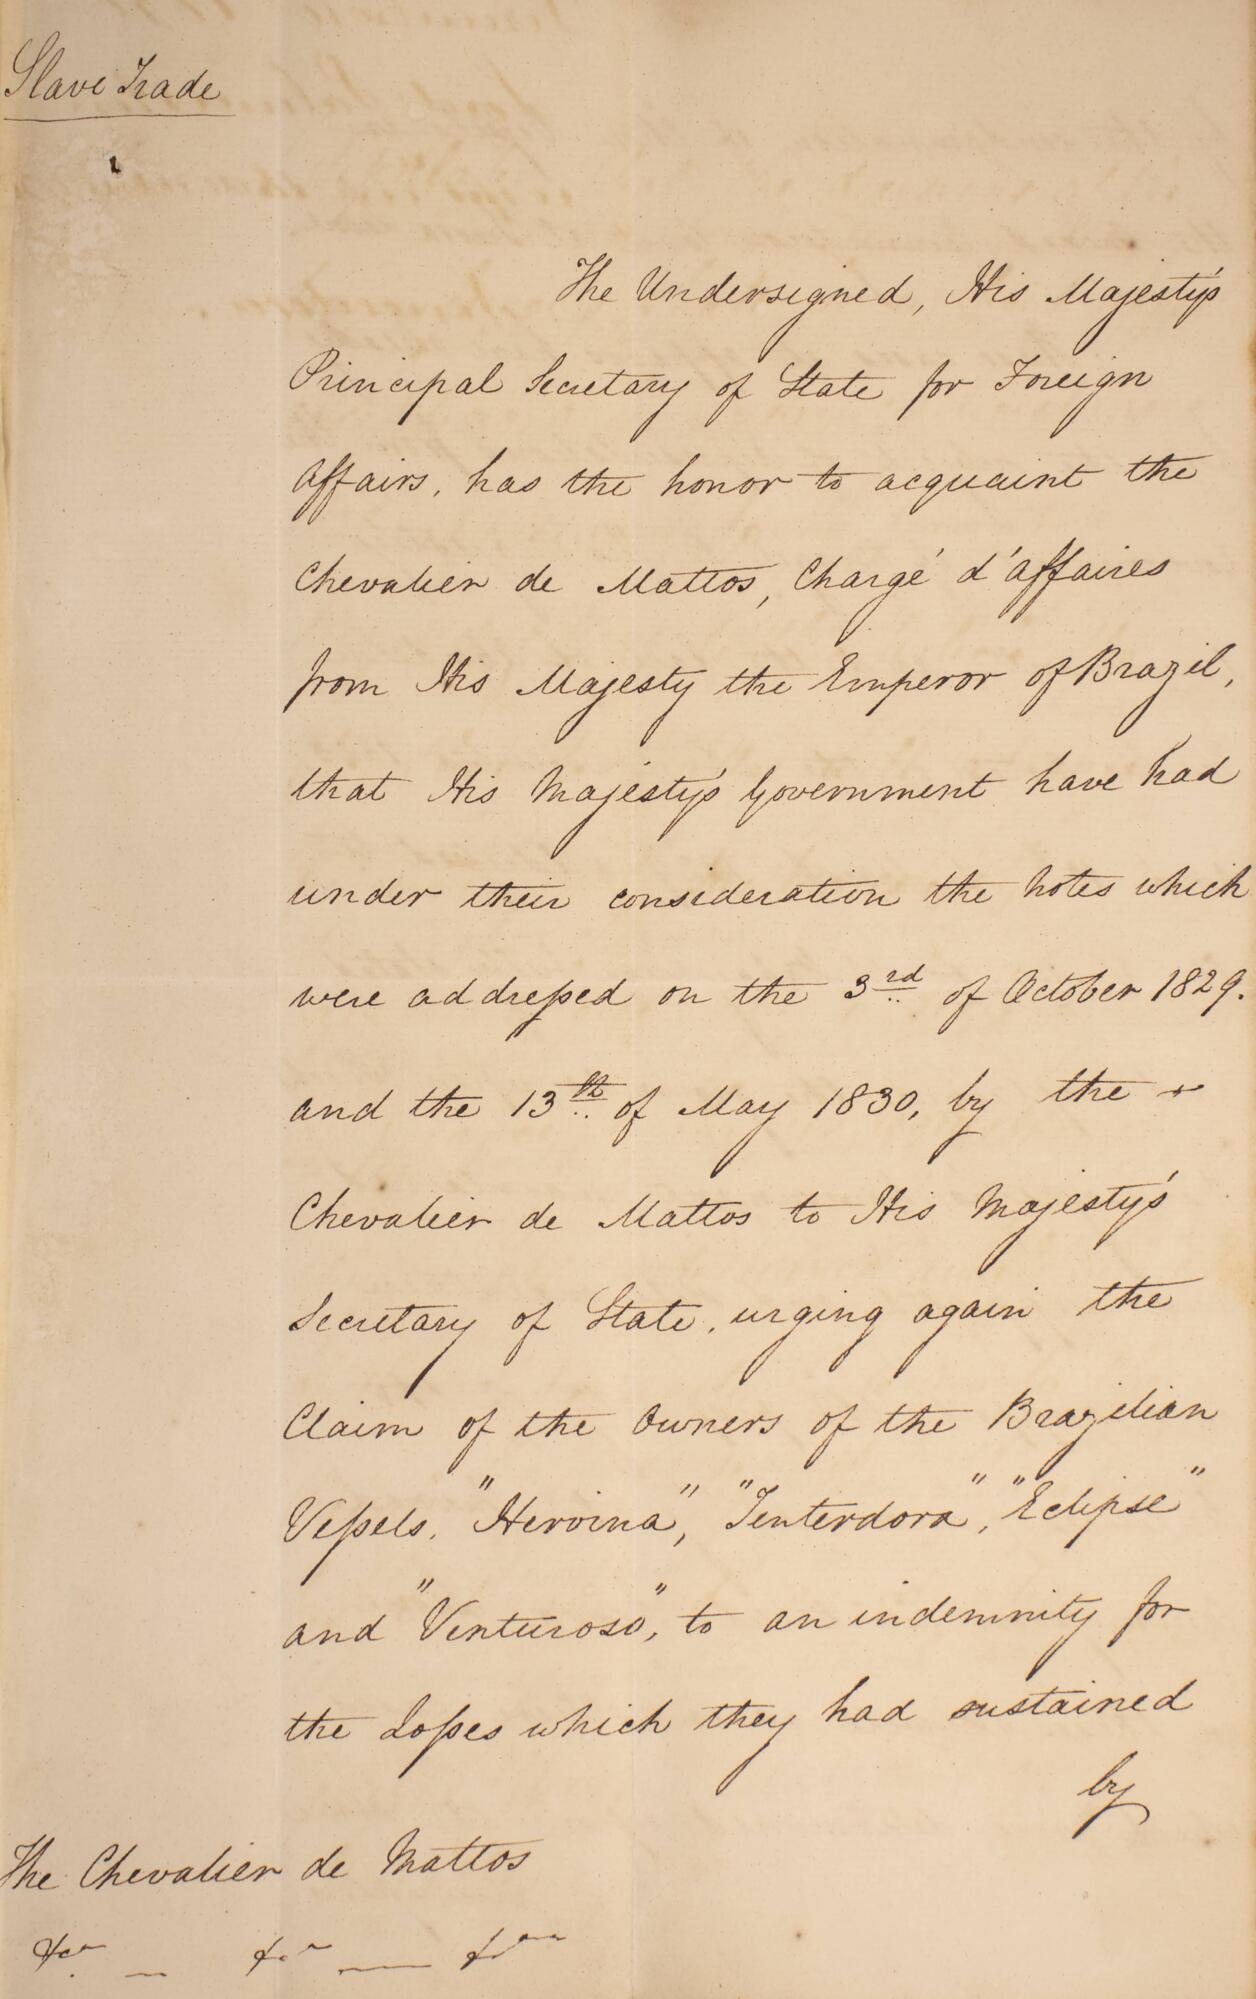 Slave Trade
The Undersigned, His Majesty's
Principal Secretary of State for Foreign
Affairs, has the honor to acquaint the
Chevalier de Mattos, Chargé d'Affaires
from His Majesty the Emperor of Brazil,
that His Majesty's Government have had
under their consideration the Notes which
were addressed on the 3rd of October 1829.
and the 13th of May 1830, by the
Chevalier de Mattos to His Majesty's
Secretary of State, urging again the
Claim of the Owners of the Brazilian
Vessels, "Heroina", "Tenterdora", "Eclipse"
and "Venturoso", to an indemnity for
the Losses which they had sustained
by
The Chevalier de Mattos
&ca &ca &ca